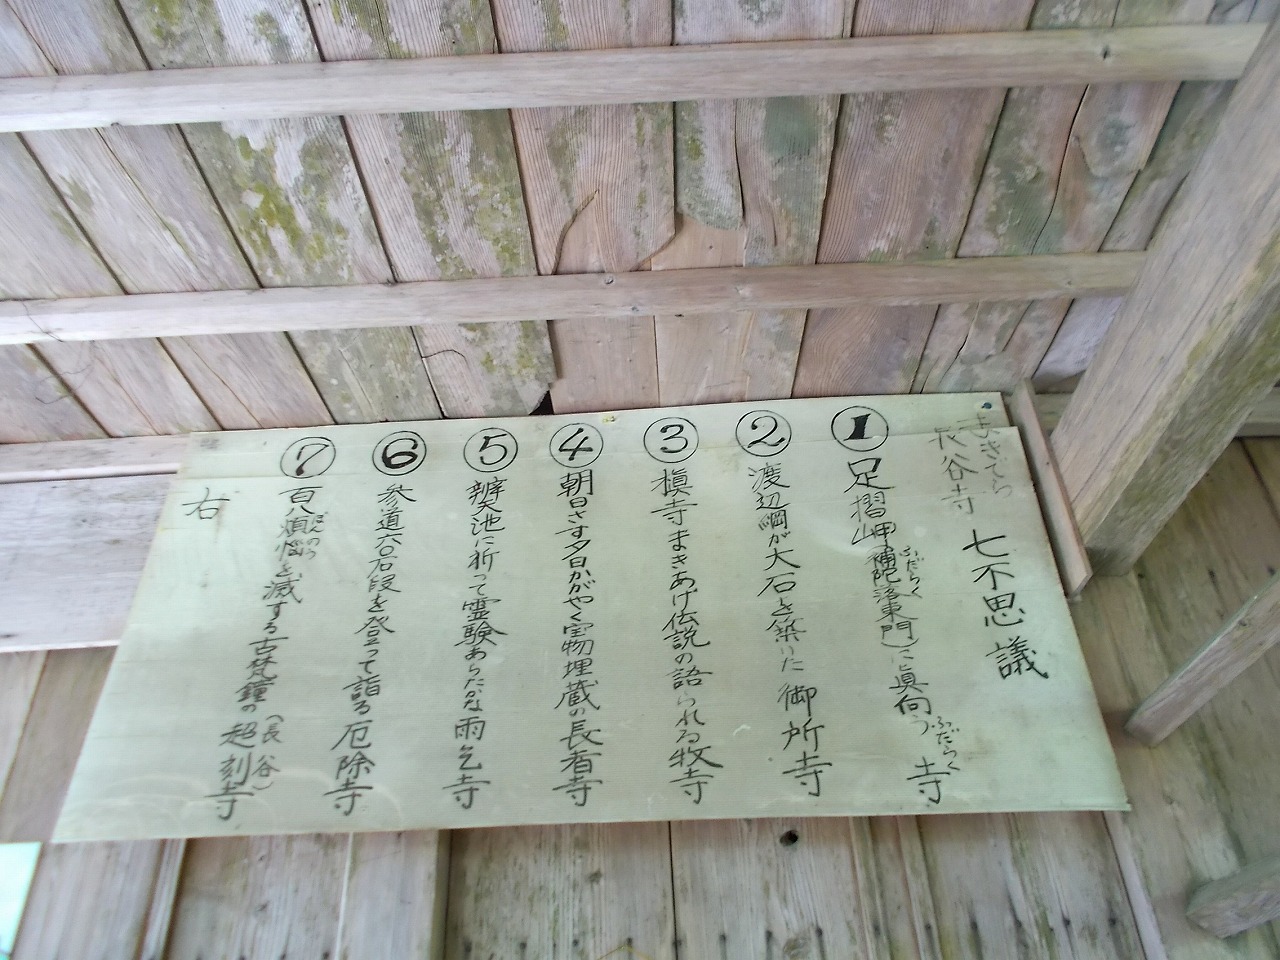 長谷寺 七不思議
① 足摺岬(補陀洛東門)に真向う ふだらく寺
② 渡辺綱が大石を築いた 御所寺
③ 槇寺まきあげ伝説の語られる牧寺
④ 朝日さす夕日かがやく宝物埋蔵の長者寺
⑤ 辨天池に祈って霊験あらたかな雨乞寺
⑥ 参道六百石段を登って詣る厄除寺
⑦ 百八煩悩を滅する古梵鐘の超刻寺(長谷)
右